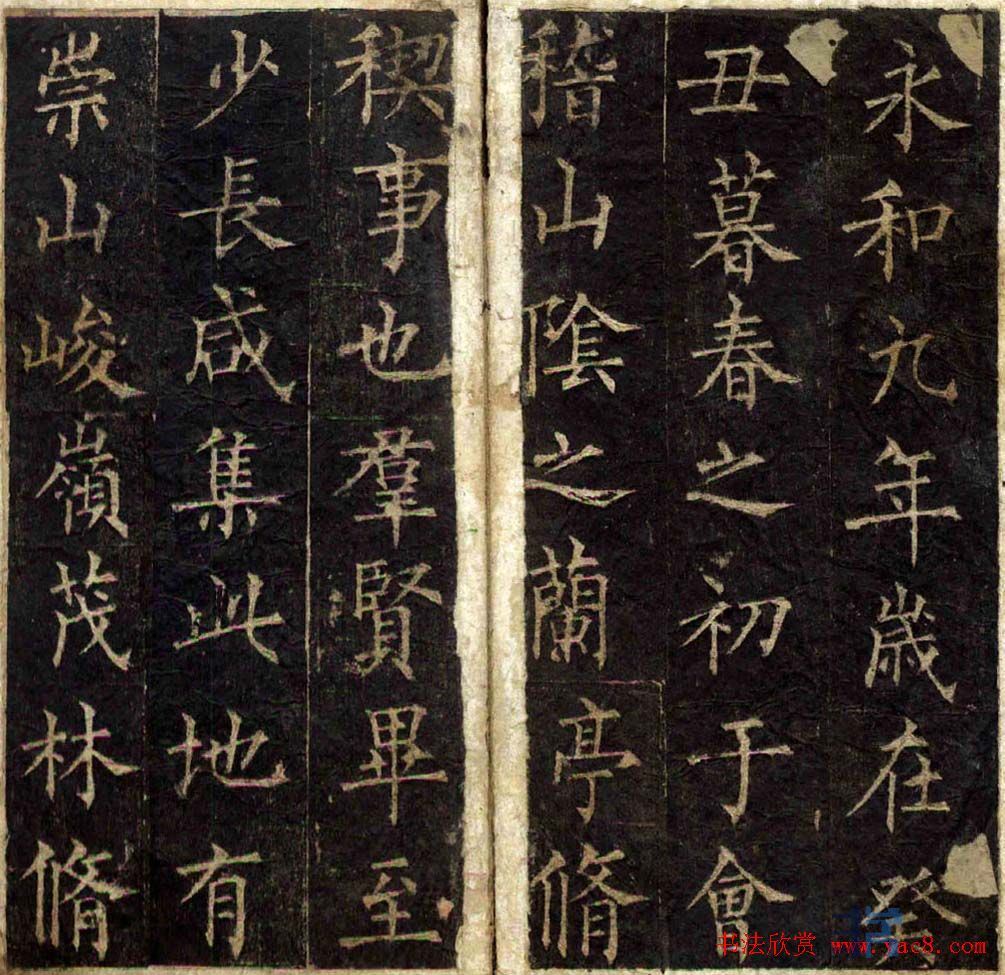 永和九年歲在癸
丑暮春之初于會
稽山陰之蘭亭脩
稧事也羣賢畢至
少長咸集此地有
崇山峻嶺茂林脩
书法欣赏 www.yac8.com